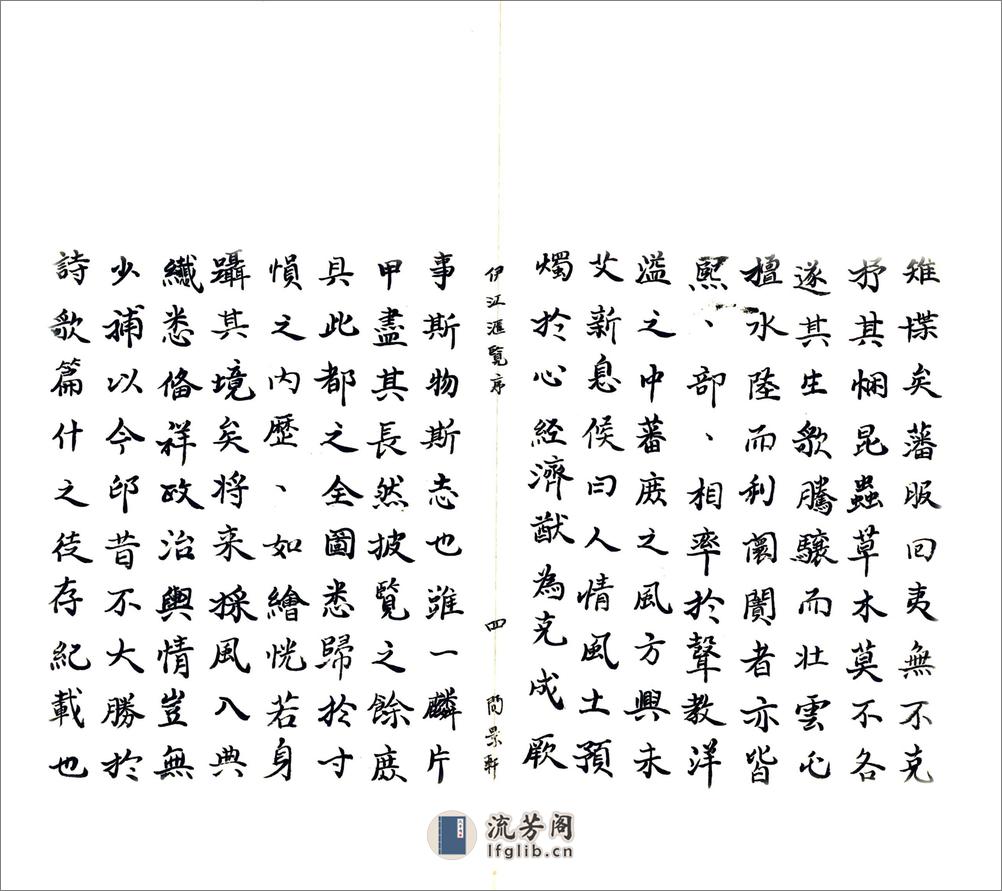 雉堞矣藩服回夷無不克
抒其悃昆蟲草木莫不各
遂其生歌騰驤而壯雲屯
檀水陸而利闤闠者亦皆
熙、部、相率於聲教洋
溢之中蕃庶之風方興未
艾新息候曰人情風土預
燭於心經濟猷為克成厥
伊江滙覽序
四
問景軒
事斯物斯志也雖一麟片
甲盡其長然披覽之餘庶
具此都之全圖悉歸於寸
慣之內歷、如繪恍若身
躡其境矣将来採風入典
纖悉俻祥政治輿情豈無
少補以今卬昔不大勝於
詩歌篇什之徒存紀載也
流芳阁
lfglib.cn